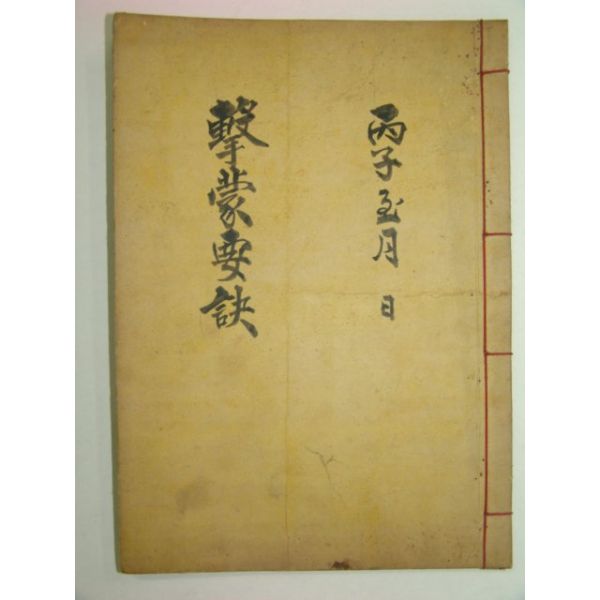 丙子至月 日
擊蒙要訣